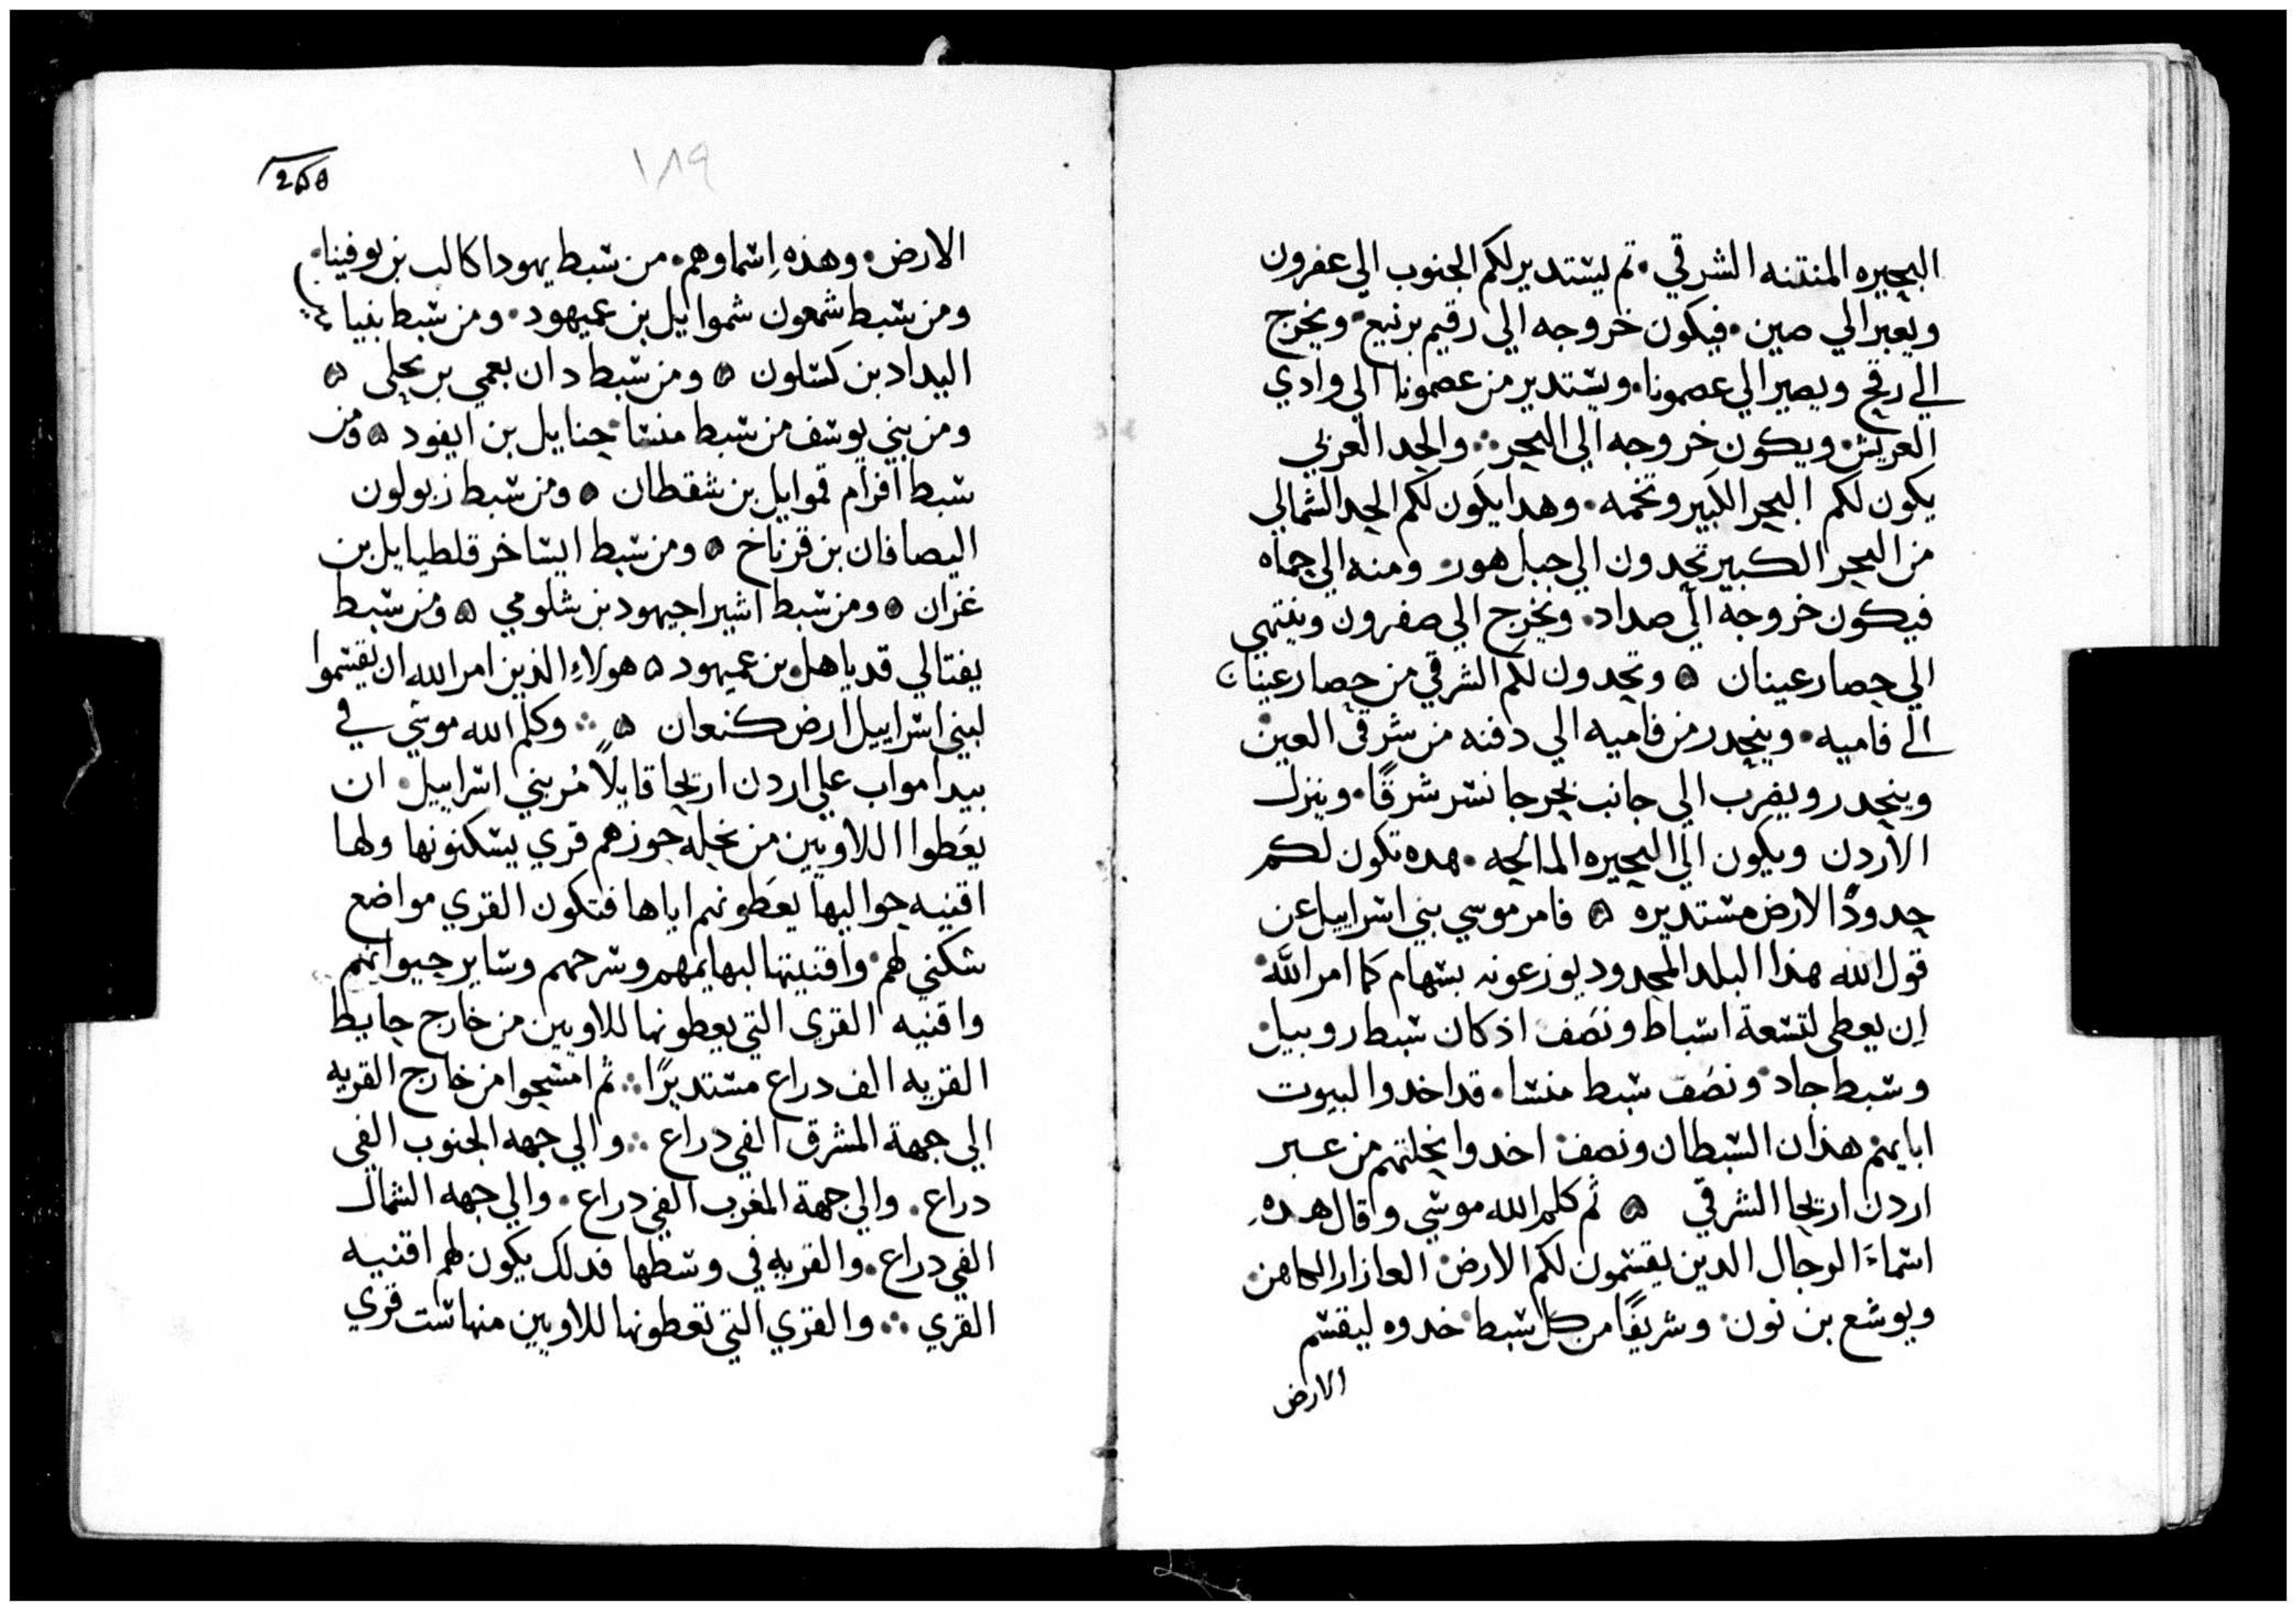 البحيره المنتنه الشرقي. تم يستدير لكم الجنوب الي عفرون
ويعبر الي صين. فيكون خروجه الي رقيم برنيع. ويخرج
الي رفح ويصير الي عصمونا. ويستدير من عصمونا الي وادي
العريش. ويكون خروجه الي البحر ஃ والحد الغربي
يكون لكم البحر الكبير وتخمه. وهدا يكون لكم الحد الشمالي
من البحر الكبير تحدون الي جبل هور. ومنه الي حماه
فيكون خروجه الي صداد. ويخرج الي صفرون وينتهي
الي حصار عينان ۵ وتحدون لكم الشرقي من حصار عينان
الي فاميه. وينحدر من فاميه الي دفنه من شرقي العين
وينحدر ويضرب الي جانب بحر جانسر شرقًا. وينزل
الاردن ويكون الي البحيره المالحه. هده تكون لكم
حدودًا الارض مستديره ۵ فامر موسي بني اسراييل عن
قول الله هذا البلد المحدود يوزعونه بسهام كما امر الله.
اِن يعطي لتسعة اسباط ونصَف اذ كان سبط روبيل.
وسبط جاد. ونصَف سبط منسا. قد اخدوا لبيوت
ابايهم هذان السبطان ونصف. اخدوا نحلتهم من عبر
اردن اريحا الشرقي ۵ ثم كلم الله موسي وقال هده
اسماءَ الرجال الدين يقسمون لكم الارض. العازار الكاهن.
ويوشع بن نون. وشريفًا من كل سبط. خدوه ليقسم
الارض
255
١٨٩
الارض. وهذه اِسماوهم. من سبط يهودا كالب بن يوفينا.
ومن سبط شمعون شموايل بن عميهود. ومن سبط بنيامين
اليداد بن كسلون ۵ ومن سبط دان بعمي بر يحلي ۵
ومن بني يوسف من سبط منسا. حنايل بن ايفود ۵ ومن
سبط افرام قموايل بن شفطان ۵ ومن سبط زبولون
اليصافان بن فرناخ ۵ ومن سبط ايساخر فلطيايل بن
غزان ۵ ومن سبط اشير احيهود بن شلومي ۵ ومن سبط
يفتالي فدياهل بن عميهود ۵ هولاءِ الذين امر الله ان يقسموا
لبني اسراييل ارض كنعان ۵ ஃ وكلم الله موسي في
بيدا مواب علي اردن اريحا قايلًا مُر بني اسراييل. ان
يعَطوا اللاويين من نحله حوزهم قري يسكنونها ولها
اقنيه حواليها يعَطونهم اياها فتكون القري مواضع
سكني لهم. واقنيتها لبهايمهم وسرحهم وساير حيواتهم
واقنيه القري التي يعطونها للاويين من خارج حايط
القريه الف دراع مستديرًا ஃ ثم امسحوا من خارج القريه
الي جهة المشرق الفي دراع ஃ والي جهه الجنوب الفي
دراع. والي جهة المغرب الفي دراع. والي جهه الشمال
الفي دراع. والقريه في وسطها فدلك يكون لهم اقنيه
القري ஃ والقري التي تعطونها للاويين منها ست قري